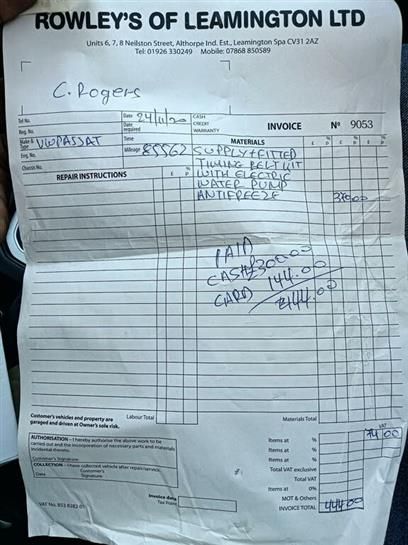 ROWLEY'S OF LEAMINGTON LTD
Units 6, 7, 8 Neilston Street, Althorpe Ind. Est., Leamington Spa CV31 2AZ
Tel: 01926 330249 Mobile: 07868 850589
C. Rogers
Tel No. Date 24/11/20 CASH
Reg. No. Date required CREDIT INVOICE No 9053
WARRANTY
Make & Type VW PASSAT Mileage 85562 MATERIALS £ p £ p
Eng. No. SUPPLY + FITTED
Chassis No. TIMING BELT KIT
REPAIR INSTRUCTIONS £ p WITH ELECTRIC
WATER PUMP
ANTIFREEZE 370.00
PAID
CASH £300.00
CARD 144.00
£444.00
Customer's vehicles and property are
garaged and driven at Owner's sole risk. Labour Total Materials Total
VAT
AUTHORISATION – I hereby authorise the above work to be Items at % 74 00
carried out and the incorporation of necessary parts and materials
incidental thereto. Items at %
Customer's Signature Items at %
COLLECTION – I have collected vehicle after repair/service. Total VAT exclusive
Date Customer's Signature Total VAT
Items at 0%
Invoice date MOT & Others
Tax Point INVOICE TOTAL 444.00
VAT No. 853 8282 01